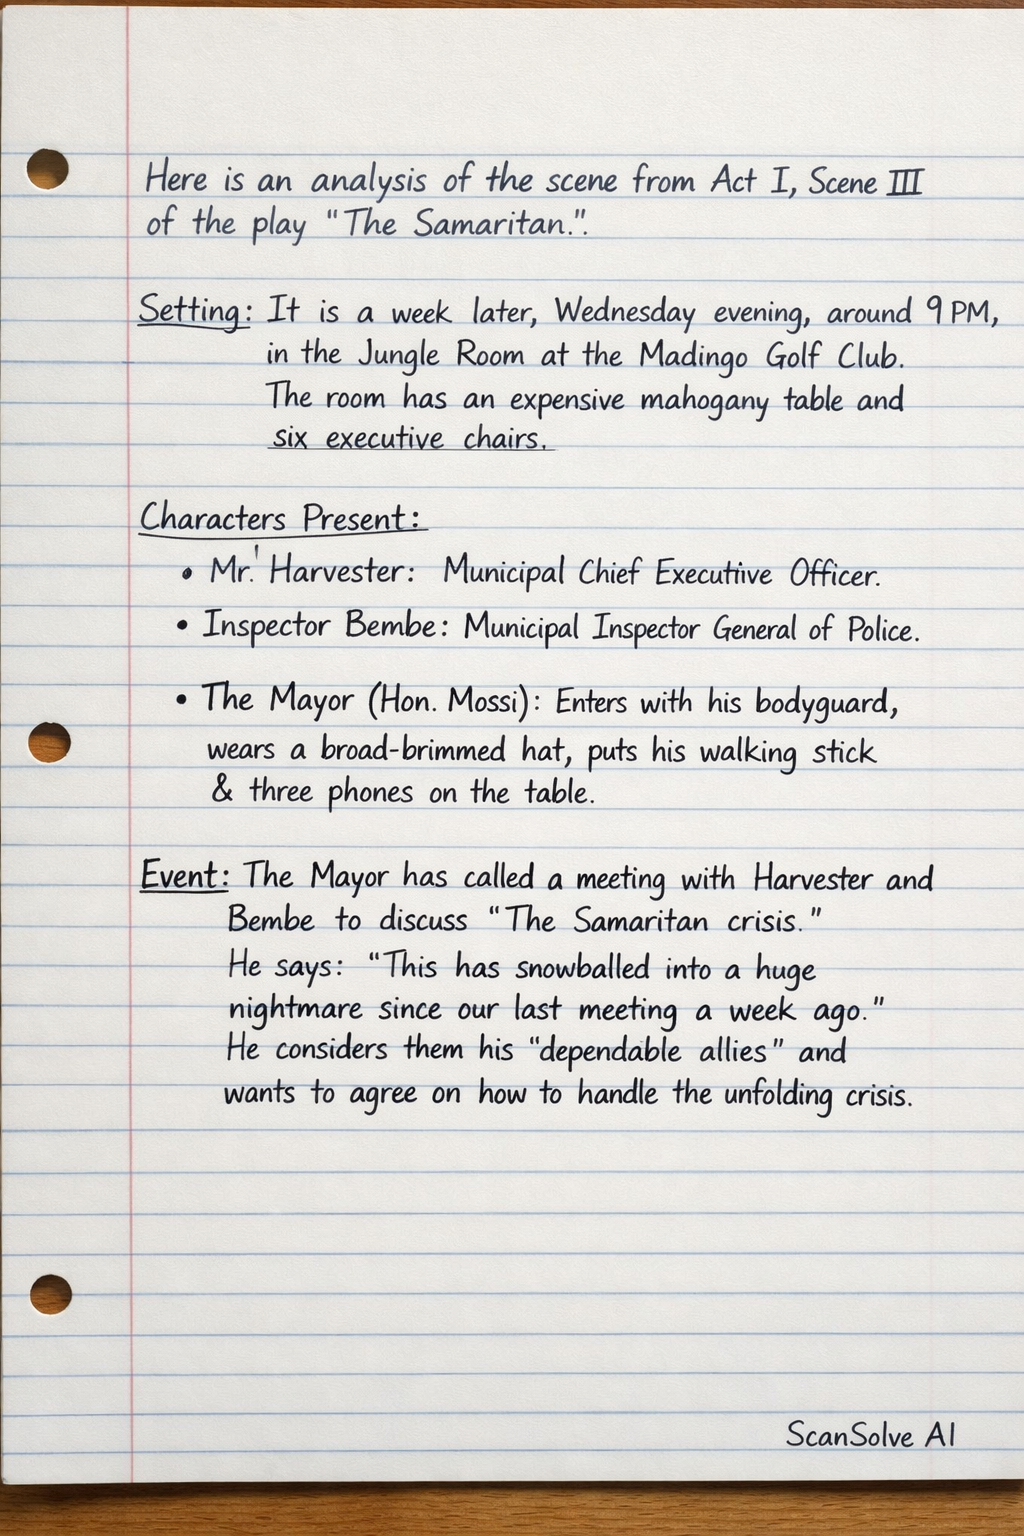 Here is an analysis of the scene from Act I, Scene III
of the play "The Samaritan.".
Setting: It is a week later, Wednesday evening, around 9 PM,
in the Jungle Room at the Madingo Golf Club.
The room has an expensive mahogany table and
six executive chairs.
Characters Present:
• Mr.' Harvester: Municipal Chief Executive Officer.
• Inspector Bembe: Municipal Inspector General of Police.
• The Mayor (Hon. Mossi): Enters with his bodyguard,
wears a broad-brimmed hat, puts his walking stick
& three phones on the table.
Event: The Mayor has called a meeting with Harvester and
Bembe to discuss "The Samaritan crisis."
He says: "This has snowballed into a huge
nightmare since our last meeting a week ago."
He considers them his "dependable allies" and
wants to agree on how to handle the unfolding crisis.
ScanSolve AI